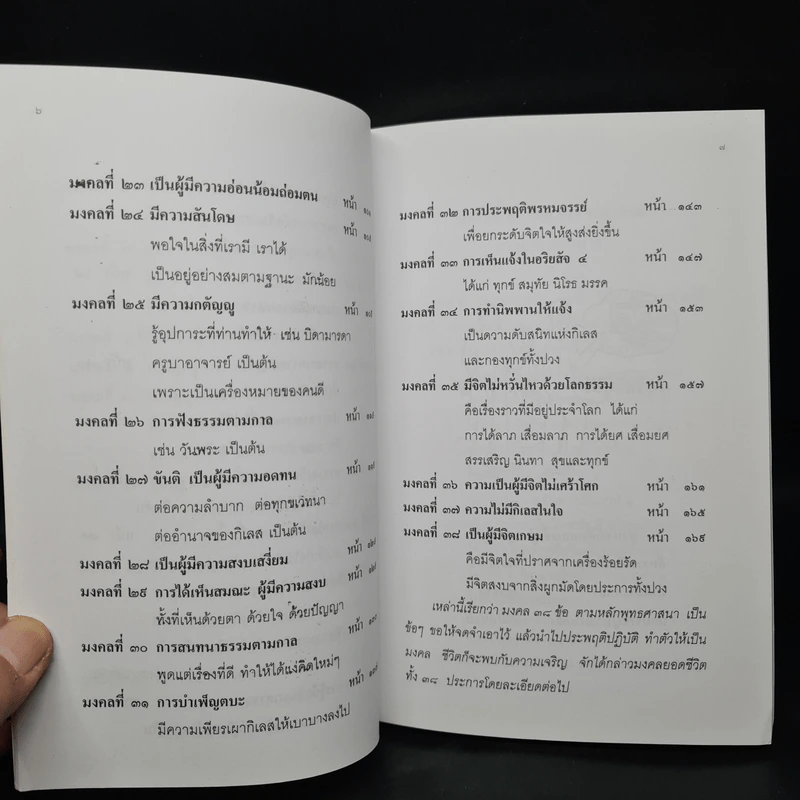 ๖
มงคลที่ ๒๓ เป็นผู้มีความอ่อนน้อมถ่อมตน หน้า
มงคลที่ ๒๔ มีความสันโดษ หน้า
พอใจในสิ่งที่เรามี เราได้
เป็นอยู่อย่างสมตามฐานะ มักน้อย
มงคลที่ ๒๕ มีความกตัญญู หน้า
รู้อุปการะที่ท่านทำให้ เช่น บิดามารดา
ครูบาอาจารย์ เป็นต้น
เพราะเป็นเครื่องหมายของคนดี
มงคลที่ ๒๖ การฟังธรรมตามกาล หน้า
เช่น วันพระ เป็นต้น
มงคลที่ ๒๗ ขันติ เป็นผู้มีความอดทน หน้า
ต่อความลำบาก ต่อทุกขเวทนา
ต่ออำนาจของกิเลส เป็นต้น
มงคลที่ ๒๘ เป็นผู้มีความสงบเสงี่ยม หน้า
มงคลที่ ๒๙ การได้เห็นสมณะ ผู้มีความสงบ หน้า
ทั้งที่เห็นด้วยตา ด้วยใจ ด้วยปัญญา
มงคลที่ ๓๐ การสนทนาธรรมตามกาล หน้า
พูดแต่เรื่องที่ดี ทำให้ได้แง่คิดใหม่ๆ
มงคลที่ ๓๑ การบำเพ็ญตบะ หน้า
มีความเพียรเผากิเลสให้เบาบางลงไป
๗
มงคลที่ ๓๒ การประพฤติพรหมจรรย์ หน้า ๑๔๓
เพื่อยกระดับจิตใจให้สูงส่งยิ่งขึ้น
มงคลที่ ๓๓ การเห็นแจ้งในอริยสัจ ๔ หน้า ๑๔๗
ได้แก่ ทุกข์ สมุทัย นิโรธ มรรค
มงคลที่ ๓๔ การทำนิพพานให้แจ้ง หน้า ๑๕๓
เป็นความดับสนิทแห่งกิเลส
และกองทุกข์ทั้งปวง
มงคลที่ ๓๕ มีจิตไม่หวั่นไหวด้วยโลกธรรม หน้า ๑๕๗
คือเรื่องราวที่มีอยู่ประจำโลก ได้แก่
การได้ลาภ เสื่อมลาภ การได้ยศ เสื่อมยศ
สรรเสริญ นินทา สุขและทุกข์
มงคลที่ ๓๖ ความเป็นผู้มีจิตไม่เศร้าโศก หน้า ๑๖๑
มงคลที่ ๓๗ ความไม่มีกิเลสในใจ หน้า ๑๖๕
มงคลที่ ๓๘ เป็นผู้มีจิตเกษม หน้า ๑๖๙
คือมีจิตใจที่ปราศจากเครื่องร้อยรัด
มีจิตสงบจากสิ่งผูกมัดโดยประการทั้งปวง
เหล่านี้เรียกว่า มงคล ๓๘ ข้อ ตามหลักพุทธศาสนา เป็น
ข้อๆ ขอให้จดจำเอาไว้ แล้วนำไปประพฤติปฏิบัติ ทำตัวให้เป็น
มงคล ชีวิตก็จะพบกับความเจริญ จักได้กล่าวมงคลยอดชีวิต
ทั้ง ๓๘ ประการโดยละเอียดต่อไป